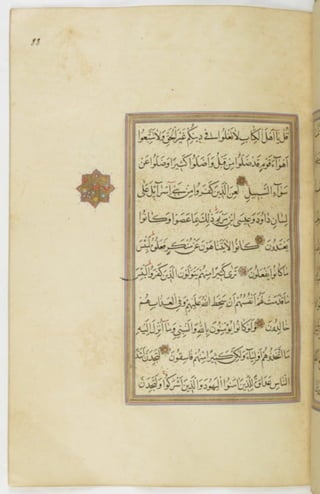 ٩٩
قُلْ يَا أَهْلَ الْكِتَابِ لَا تَغْلُوا فِي دِينِكُمْ غَيْرَ الْحَقِّ وَلَا تَتَّبِعُوا
أَهْوَاءَ قَوْمٍ قَدْ ضَلُّوا مِنْ قَبْلُ وَأَضَلُّوا كَثِيرًا وَضَلُّوا عَنْ
سَوَاءِ السَّبِيلِ لُعِنَ الَّذِينَ كَفَرُوا مِنْ بَنِي إِسْرَائِيلَ عَلَى
لِسَانِ دَاوُدَ وَعِيسَى ابْنِ مَرْيَمَ ذَلِكَ بِمَا عَصَوْا وَكَانُوا
يَعْتَدُونَ كَانُوا لَا يَتَنَاهَوْنَ عَنْ مُنْكَرٍ فَعَلُوهُ لَبِئْسَ
مَا كَانُوا يَفْعَلُونَ تَرَى كَثِيرًا مِنْهُمْ يَتَوَلَّوْنَ الَّذِينَ كَفَرُوا لَبِئْسَ
مَا قَدَّمَتْ لَهُمْ أَنْفُسُهُمْ أَنْ سَخِطَ اللَّهُ عَلَيْهِمْ وَفِي الْعَذَابِ هُمْ
خَالِدُونَ وَلَوْ كَانُوا يُؤْمِنُونَ بِاللَّهِ وَالنَّبِيِّ وَمَا أُنْزِلَ إِلَيْهِ
مَا اتَّخَذُوهُمْ أَوْلِيَاءَ وَلَكِنَّ كَثِيرًا مِنْهُمْ فَاسِقُونَ لَتَجِدَنَّ أَشَدَّ
النَّاسِ عَدَاوَةً لِلَّذِينَ آمَنُوا الْيَهُودَ وَالَّذِينَ أَشْرَكُوا وَلَتَجِدَنَّ